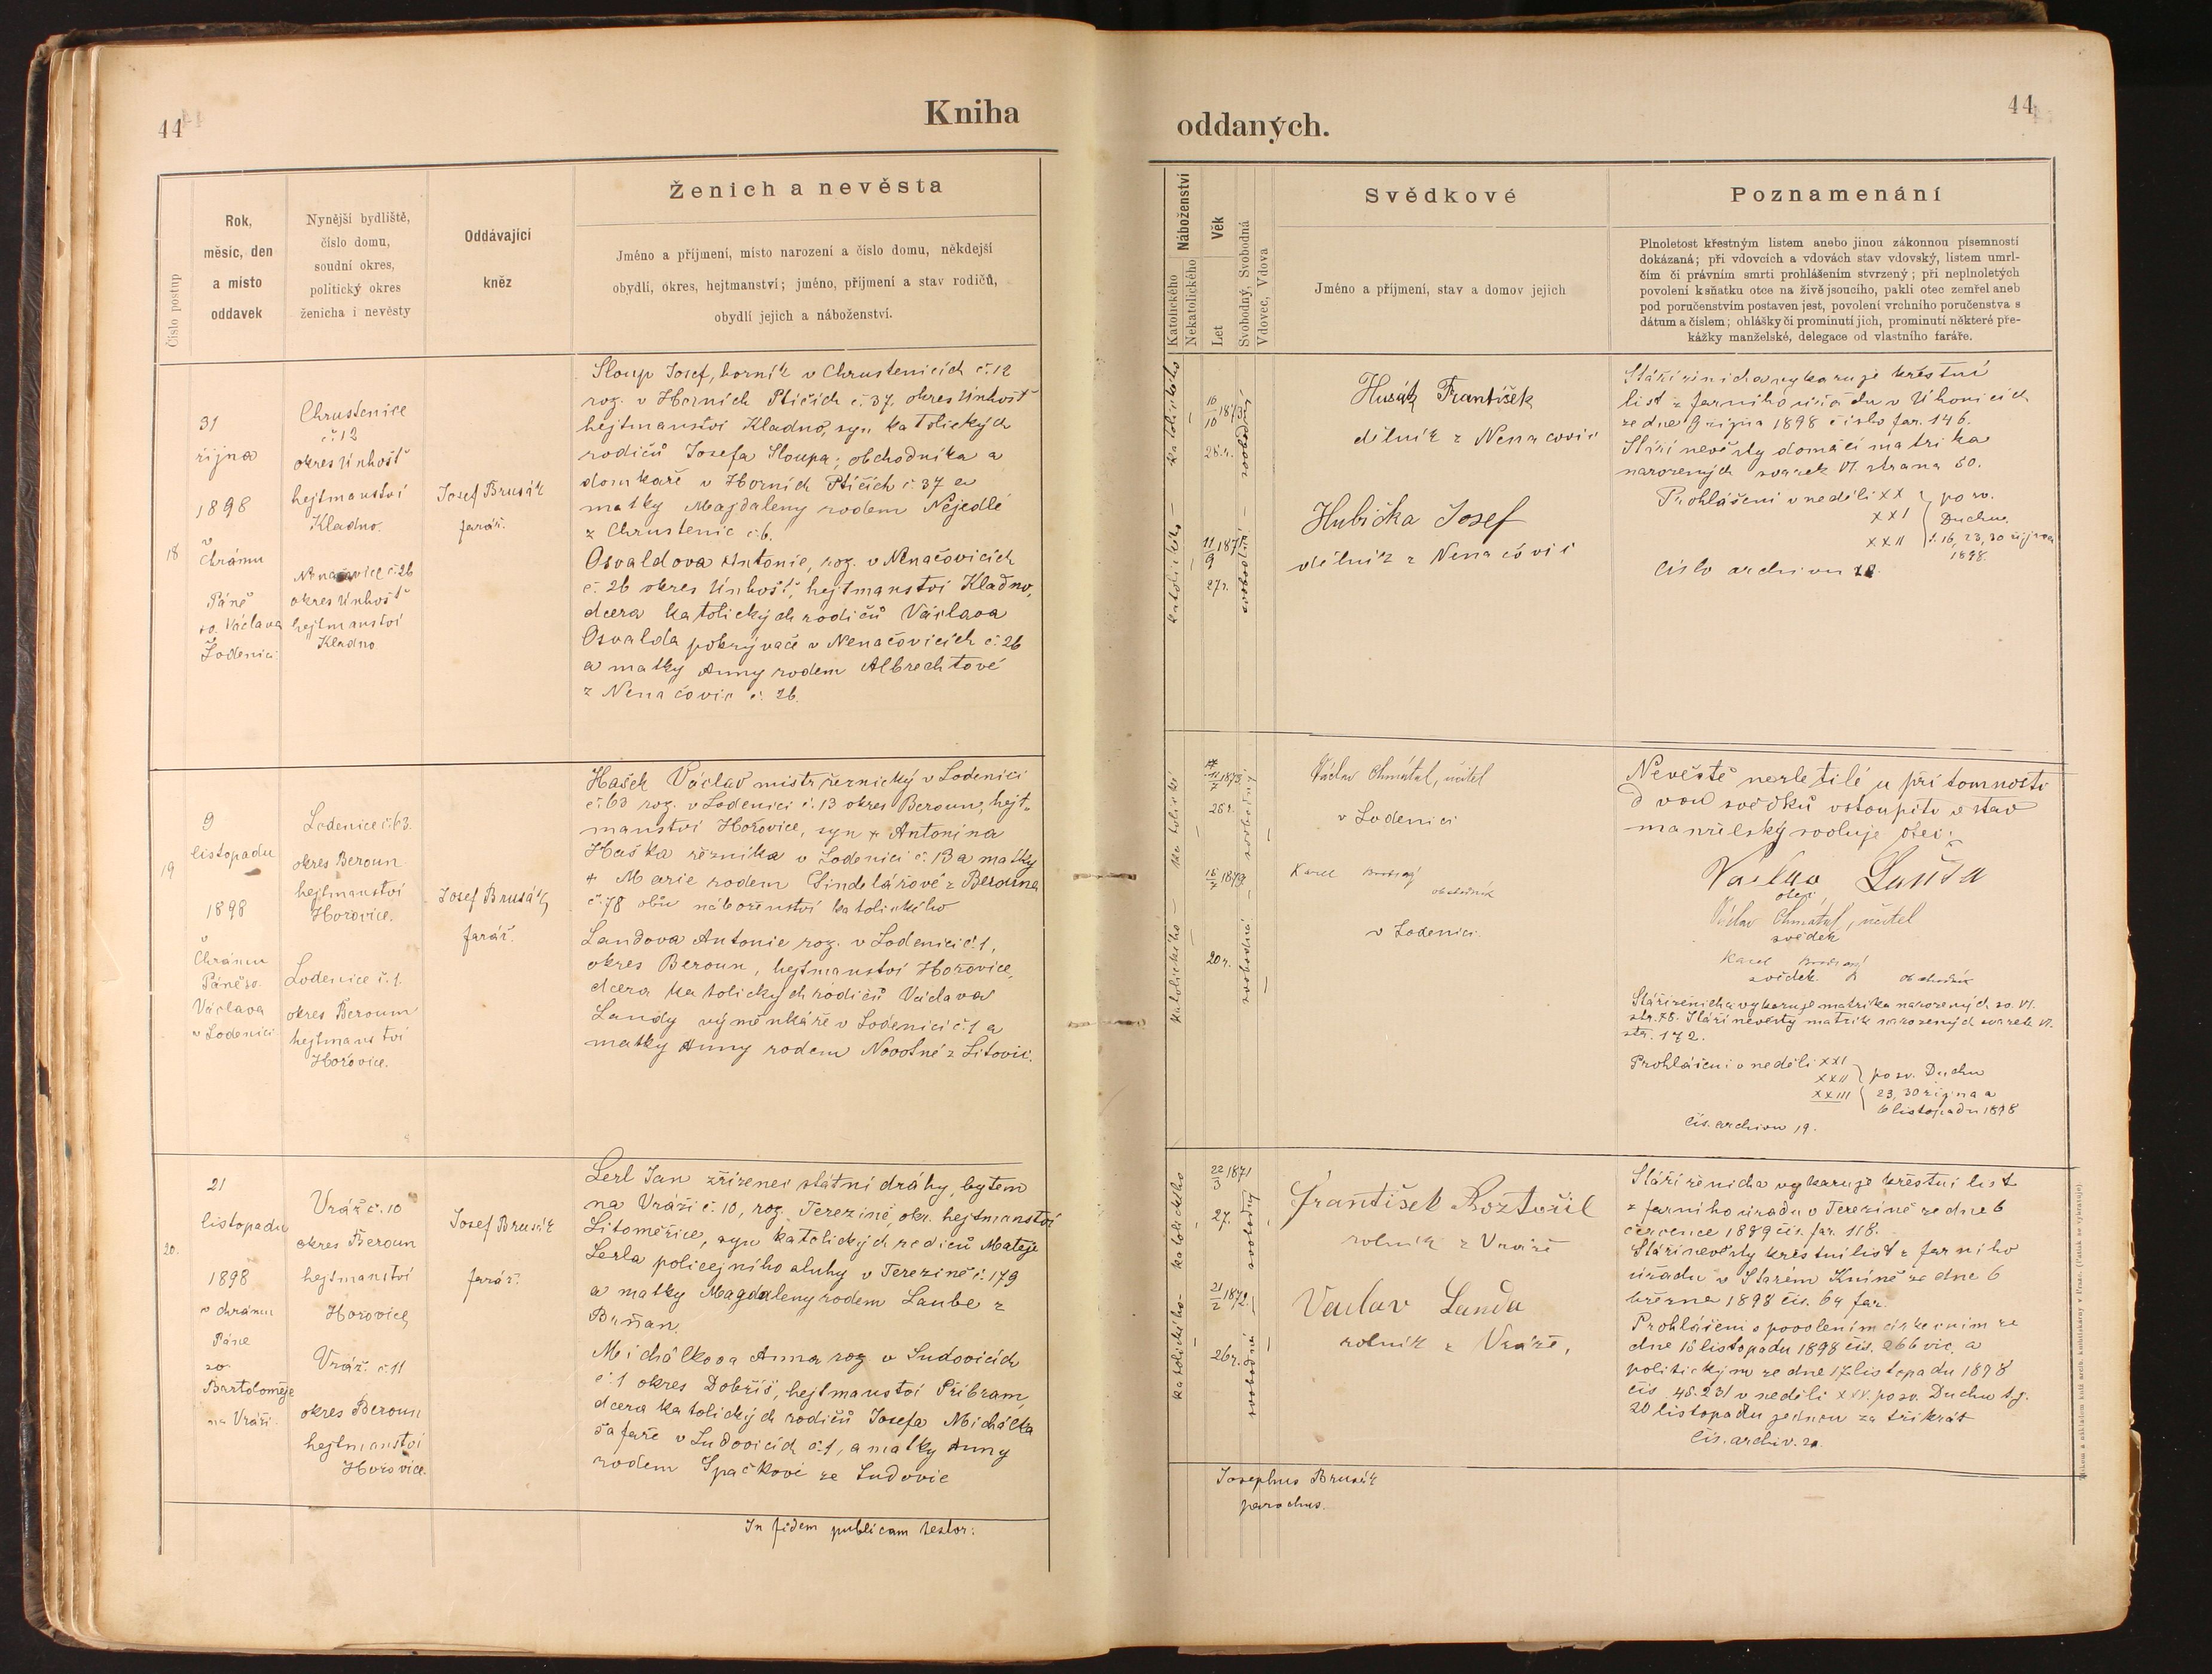 44
Kniha
Číslo postup
Rok,
měsíc, den
a místo
oddavek
Nynější bydliště,
číslo domu,
soudní okres,
politický okres
ženicha i nevěsty
Oddávající
kněz
Ženich a nevěsta
Jméno a příjmení, místo narození a číslo domu, někdejší
obydlí, okres, hejtmanství; jméno, příjmení a stav rodičů,
obydlí jejich a náboženství.
18
31
října
1898
v
Chrámu
Páně
sv. Václava
Loděnici
Chrustenice
č. 12
okres Unhošť
hejtmanství
Kladno.
Nenačovice č. 26
okres Unhošť
hejtmanství
Kladno
Josef Brusák
farář.
Sloup Josef, horník v Chrustenicích č. 12
roz. v Horních Ptičích č. 37. okres Unhošť
hejtmanství Kladno, syn katolických
rodičů Josefa Sloupa, obchodníka a
domkaře v Horních Ptičích č. 37 a
matky Magdaleny rodem Nejedlé
z Chrustenic č. 6.
Osvaldova Antonie, roz. v Nenačovicích
č. 26 okres Unhošť, hejtmanství Kladno,
dcera katolických rodičů Václava
Osvalda pokrývače v Nenačovicích č. 26
a matky Anny rodem Albrechtové
z Nenačovic č. 26.
19
9
listopadu
1898
v
Chrámu
Páně sv.
Václava
v Lodenici
Lodenice č. 63.
okres Beroun
hejtmanství
Hořovice.
Lodenice č. 1.
okres Beroun
hejtmanství
Hořovice.
Josef Brusák,
farář.
Hašek Václav mistr řeznický v Lodenici
č. 63 roz. v Lodenici č. 13 okres Beroun, hejt-
manství Hořovice, syn + Antonína
Haška řezníka v Lodenici č. 13 a matky
+ Marie rodem Šindelářové z Berouna
č. 78 obův náboženství katolického
Landova Antonie roz. v Lodenici č. 1,
okres Beroun, hejtmanství Hořovice,
dcera katolických rodičů Václava
Landy výměnkáře v Lodenici č. 1 a
matky Anny rodem Novotné z Litovic.
20.
21
listopadu
1898
v chrámu
Páně
sv
Bartoloměje
na Vráži
Vráž č. 10
okres Beroun
hejtmanství
Hořovice,
Vráž č. 11
okres Beroun
hejtmanství
Hořovice.
Josef Brusák
farář.
Lerl Jan zřízenec státní dráhy, bytem
na Vráži č. 10, roz. Terezíně, okr. hejtmanství
Litoměřice, syn katolických rodičů Matěje
Lerla policejního sluhy v Terezíně č. 179
a matky Magdaleny rodem Laube z
Bržan.
Michálkova Anna roz v Sudovicích
č. 1 okres Dobříš, hejtmanství Příbram,
dcera katolických rodičů Josefa Michálka
šafaře v Sudovicích č. 1, a matky Anny
rodem Špačkové ze Sudovic
In fidem publicam testor:
44
oddaných.
Náboženství
Katolického
Nekatolického
Věk
Let
Svobodný, Svobodná
Vdovec, Vdova
Svědkové
Jméno a příjmení, stav a domov jejich
Poznamenání
Plnoletost křestným listem anebo jinou zákonnou písemností
dokázaná; při vdovcích a vdovách stav vdovský, listem umrl-
čím či právním smrti prohlášením stvrzený; při neplnoletých
povolení k sňatku otce na živě jsoucího, pakli otec zemřel aneb
pod poručenstvím postaven jest, povolení vrchního poručenstva s
dátum a číslem; ohlášky či prominutí jich, prominutí některé pře-
kážky manželské, delegace od vlastního faráře.
katolického
16/10 1873
25 r.
svobodný
katolického
11/9 1871
27 r.
svobodná
Husák František
dělník z Nenačovic
Hubička Josef
dělník z Nenačovic
Stáří ženicha vykazuje křestní
list z farního úřadu v Úhonicích
ze dne 9 října 1898 číslo far. 146.
Stáří nevěsty domácí matrika
narozených svazek VI. strana 50.
Prohlášení v neděli XX
XXI
XXII
po sv.
Duchu,
t. 16, 23, 30 října
1898.
číslo archivu 18.
katolické
1873
25 r.
svobodný
katolického
1879
20 r.
svobodná
Václav Chmátal, učitel
v Lodenici
Karel
obchodník
v Lodenici.
Nevěstě nezletilé u přítomnosti
dvou svědků vstoupiti v stav
manželský svoluje otec:
Václav Landa
otec
Václav Chmátal, učitel
svědek
Karel
svědek obchodník
Stáří ženicha vykazuje matrika narozených sv. VI.
str. 78. Stáří nevěsty matrik narozených svazek VI.
str. 172.
Prohlášení v neděli XXI
XXII
XXIII
po sv. Duchu
23, 30 října a
6 listopadu 1898
čís. archivu 19.
katolického
22/3 1871
27.
svobodný
katolického
21/2 1872.
26 r.
svobodná
František Roztočil
rolník z Vráže
Václav Landa
rolník z Vráže,
Stáří ženicha vykazuje křestní list
z farního úřadu v Terezíně ze dne 6
července 1889 čís. far. 118.
Stáří nevěsty křestní list z farního
úřadu v Starém Kníně ze dne 6
března 1898 čís. 64 far.
Prohlášeni s povolením církevním ze
dne 18 listopadu 1898 čís. 266 vic. a
politickým ze dne 17 listopadu 1898
čís. 48.231 v neděli XXV. po sv. Duchu t.j.
20 listopadu jednou za třikrát
čís. archiv. 20.
Josephus Brusák
parochus.